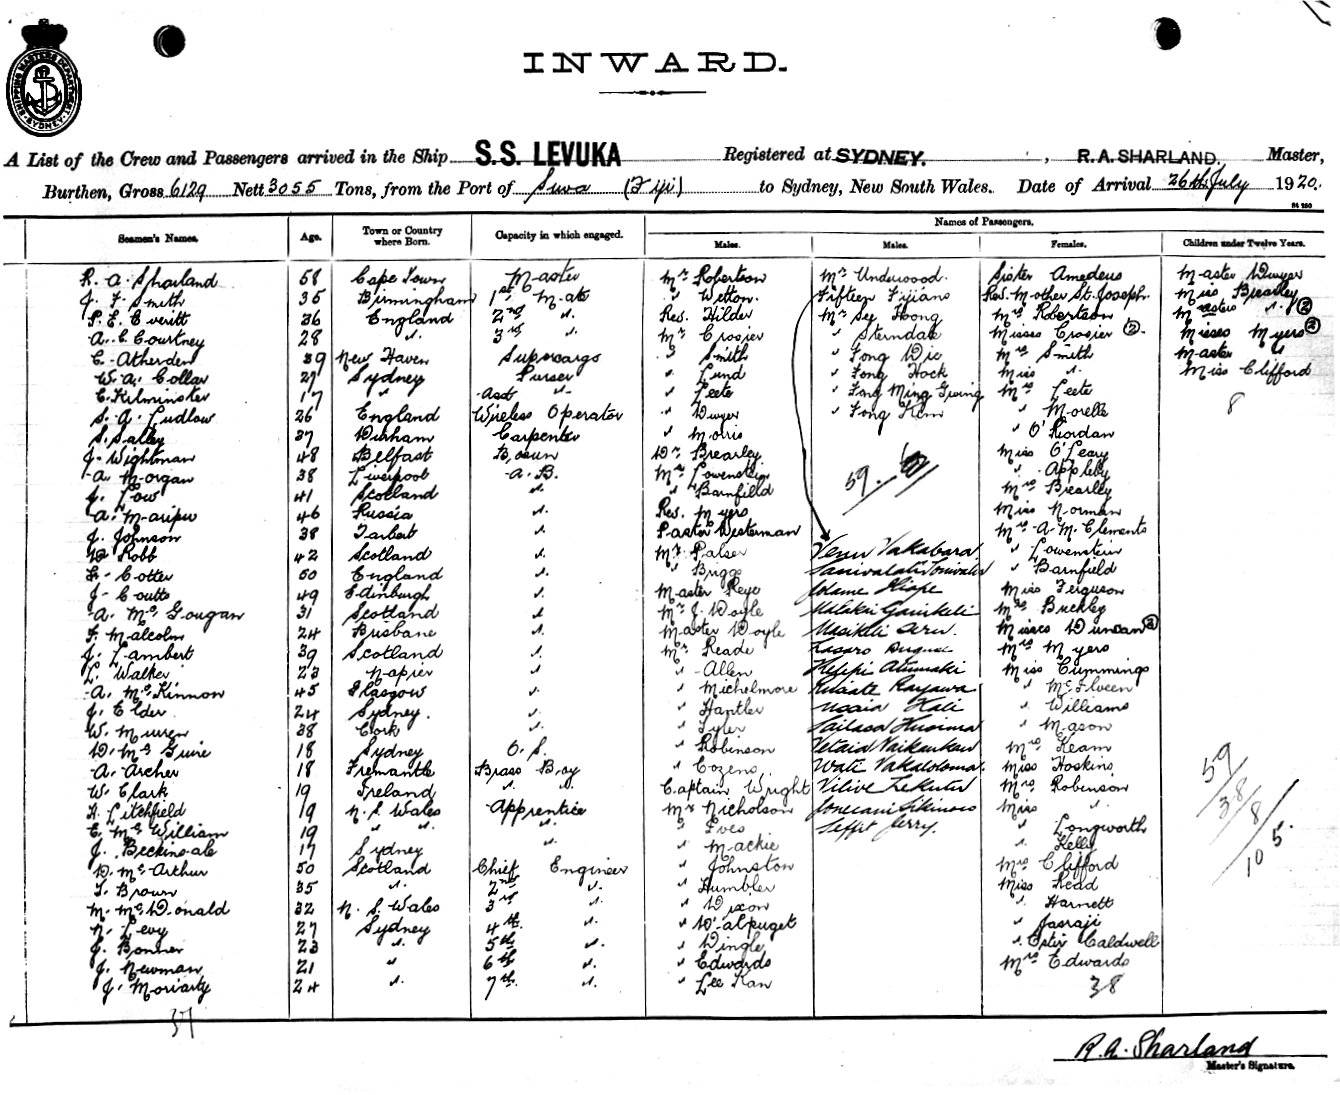 SHIPPING MASTERS DEPARTMENT SYDNEY
INWARD.
A List of the Crew and Passengers arrived in the Ship S.S. LEVUKA Registered at SYDNEY. , R.A. SHARLAND. Master,
Burthen, Gross 6129 Nett 3055 Tons, from the Port of Suva (Fiji) to Sydney, New South Wales. Date of Arrival 26th July 1920.
Names of Passengers.
Seamen's Names. Age. Town or Country where Born. Capacity in which engaged. Males. Males. Females. Children under Twelve Years.
R. A. Sharland 58 Cape Town Master
J. F. Smith 35 Birmingham 1st Mate
P. E. Everitt 36 England 2nd "
A. C. Courtney 28 " 3rd "
C. Atherden 39 New Haven Supercargo
W. A. Collar 27 Sydney Purser
C. Kilminster 17 " Asst "
S. A. Ludlow 26 England Wireless Operator
S. Salley 37 Durham Carpenter
J. Wightman 48 Belfast Bosun
A. Morgan 38 Liverpool A. B.
J. Low 41 Scotland "
A. Maripu 46 Russia "
J. Johnson 38 Tarbert "
D. Robb 42 Scotland "
H. Cotter 50 England "
J. Coutts 49 Edinburgh "
A. Mc Gougan 31 Scotland "
F. Malcolm 24 Brisbane "
J. Lambert 39 Scotland "
L. Walker 23 Napier "
A. McKinnon 45 Glasgow "
J. Elder 24 Sydney. "
W. Murren 38 Cork "
D. McGuire 18 Sydney O. S.
A. Archer 18 Fremantle Brass Boy
W. Clark 19 Ireland "
H. Litchfield 19 N. S. Wales Apprentice
E. McWilliam 19 " " "
J. Beckinsale 17 Sydney "
D. McArthur 50 Scotland Chief Engineer
T. Brown 35 " 2nd "
M. McDonald 32 N. S. Wales 3rd "
N. Levy 27 Sydney 4th "
J. Bonner 23 " 5th "
J. Newman 21 " 6th "
J. Moriarty 24 " 7th "
37
Mr Robertson
" Wetton.
Rev. Hilder
Mr Crosier
" Smith
" Lund
" Leete
" Dwyer
" Morris
Dr. Brearley
Mr Lowenstein
" Barnfield
Rev. Myers
Pastor Westerman
Mr. Palser
" Briggs
Master Reye
Mr J. Doyle
Master Doyle
Mr Reade
" Allen
" Michelmore
" Hantler
" Tyler
" Robinson
" Cozens
Captain Wright
Mr Nicholson
" Ives
" Mackie
" Johnston
" Humbler
" Dixon
" D'alpuget
" Dingle
" Edwards
" Lee Kan
Mr Underwood.
Fifteen Fijians
Mr Sey Hoong
" Sterndale
" Fong Wie
" Fong Hock
" Fong Ming Gwing
" Fong Kem
59.
Vakabara
Masikeli Seru.
Wati Vakaloloma.
Jerry.
Sister Amedeus
Rev. Mother St. Joseph.
Mrs Robertson
Misses Crosier (2).
Mrs Smith
Miss "
Mrs Leete
" Morelle
" O'Riordan
Miss O'Leary
" Appleby
Mrs Brearley
Miss Norman
Mrs A. M. Clements
" Lowenstein
" Barnfield
Miss Ferguson
Mrs Buckley
Misses Duncan (2)
Mrs Myers
Miss Cummings
" McIlveen
" Williams
" Mason
Mrs Keam
Miss Hoskins
Mrs Robinson
Miss "
" Longworth
" Kelly
Mrs Clifford
Miss Redd
" Harnett
" Jasraji
" Ester Caldwell
Mrs Edwards
38
Master Dwyer
Miss Brearley
Masters " (2)
Misses Myers (2)
Master "
Miss Clifford
8
59
38
8
105.
R. A. Sharland
Master's Signature.